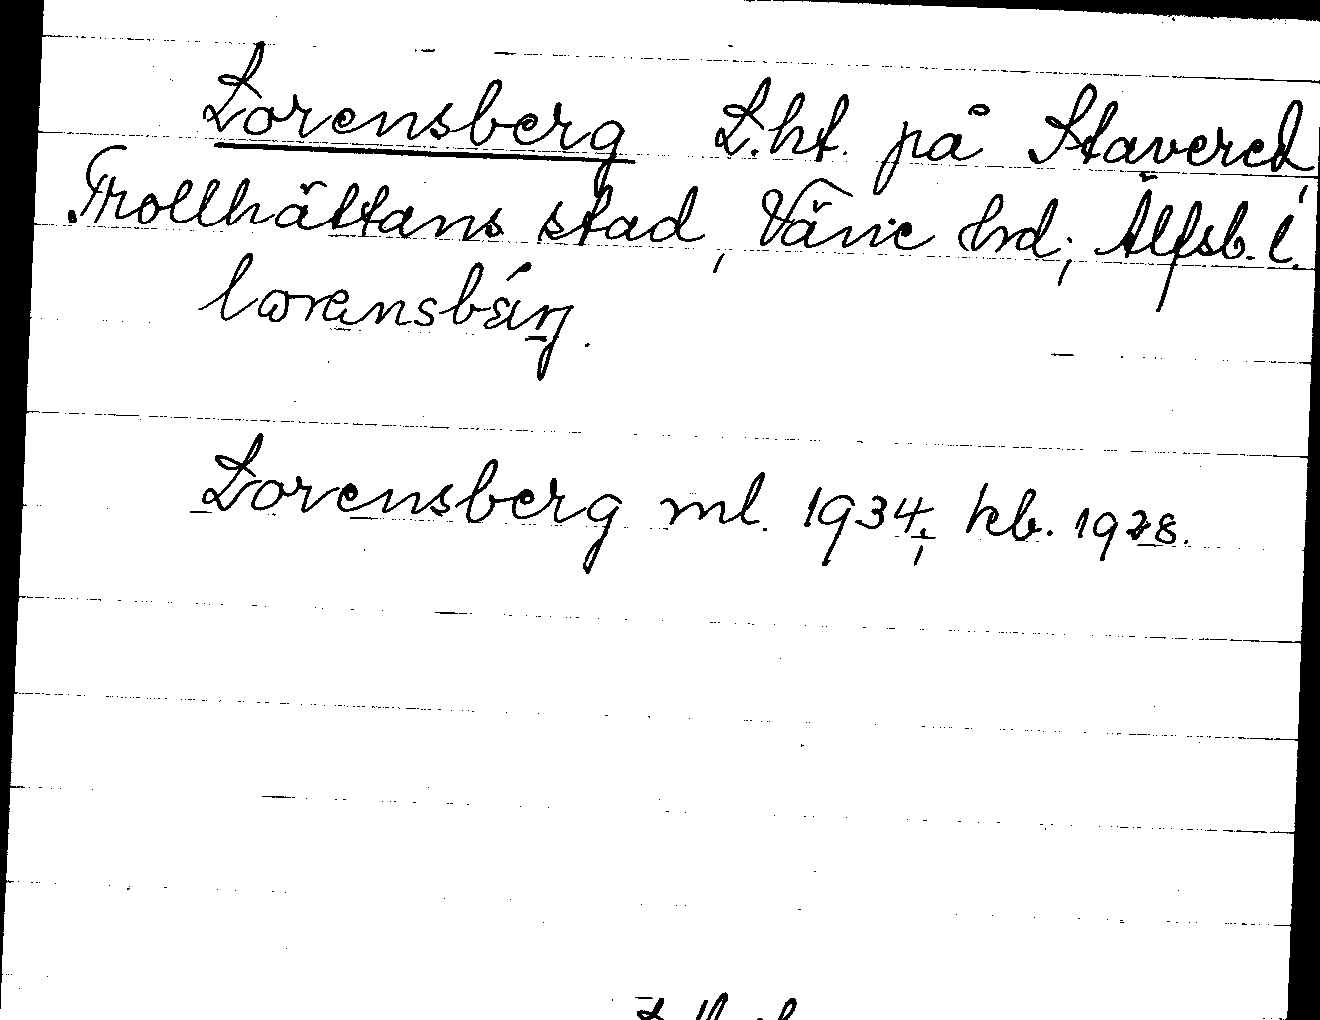 Lorensberg L.ht. på Stavered,
Trollhättans stad, Väne hrd; Älfsb. l.
Lorensberg ml. 1934; kb. 1928.